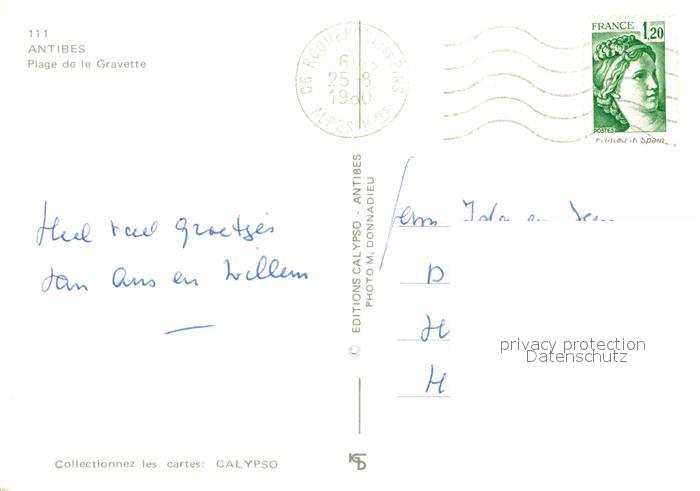 111
ANTIBES
Plage de le Gravette
06 ROQUEFORT LES PINS
25-8
1980
ALPES MMES
FRANCE 1,20
POSTES
Printed in Spain
Heel veel groetjes
Jan Ans en Willem
© EDITIONS CALYPSO - ANTIBES
PHOTO M. DONNADIEU
D
H
H
privacy protection
Datenschutz
Collectionnez les cartes: CALYPSO